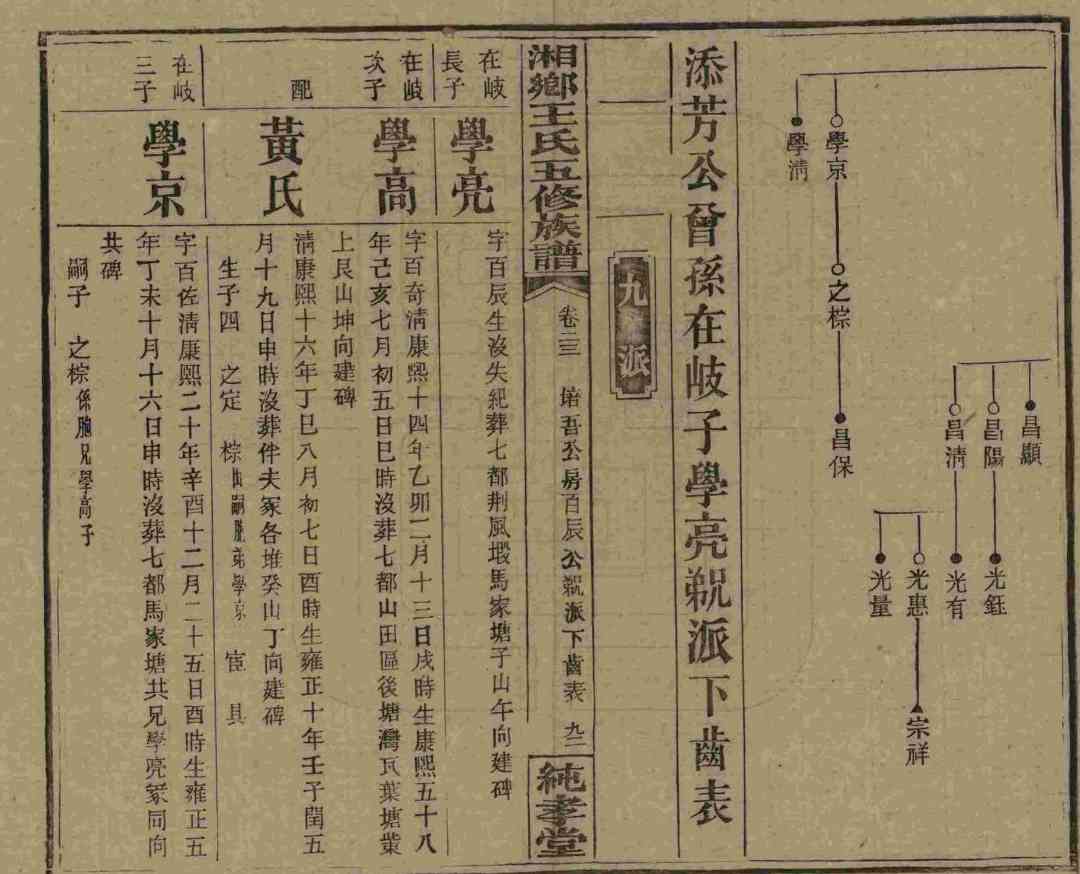 昌顯
昌陽
昌淸
光鈺
光有
光惠
光量
宗祥
學京
之棕
昌保
學淸
添芳公曾孫在岐子學亮覞派下齒表
九
派
湘鄉王氏五修族譜
卷二三
培吾公房百辰公覞派下齒表
九二
純孝堂
在岐
長子
學亮
字百辰生沒失紀葬七都荆風塅馬家塘子山午向建碑
在岐
次子
學高
字百奇淸康熙十四年乙卯二月十三日戌時生康熙五十八
年己亥七月初五日巳時沒葬七都山田區後塘灣瓦葉塘塋
上艮山坤向建碑
配
黃氏
淸康熙十六年丁巳八月初七日酉時生雍正十年壬子閏五
月十九日申時沒葬伴夫冢各堆癸山丁向建碑
生子四 之定 棕出嗣胞弟學京 宦 具
在岐
三子
學京
字百佐淸康熙二十年辛酉十二月二十五日酉時生雍正五
年丁未十月十六日申時沒葬七都馬家塘共兄學亮冢同向
共碑
嗣子 之棕係胞兄學高子